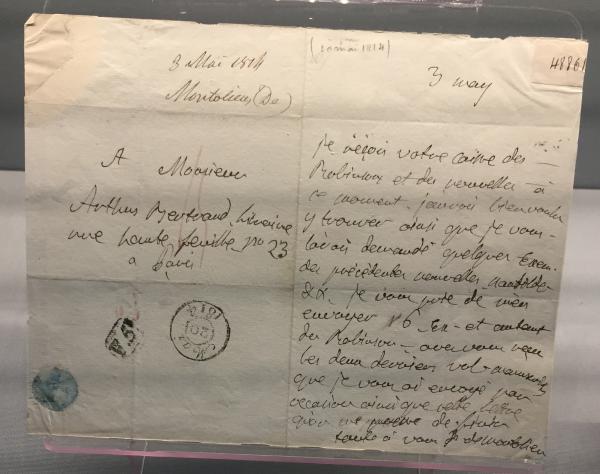 3 Mai 1814
Montolieu (De)
A Monsieur
Arthus Bertrand, Libraire
rue haute feuille no 23
a Paris
1814
(10 mai 1814)
3 may
Je reçois votre caisse des
Robinson et des nouvelles à
ce moment. j'aurois bien voulu
y trouver ainsi que je vous
l'avois demandé quelques Exem
des précédentes nouvelles
&x. je vous prie de m'en
envoyer 6 Ex - et autant
du Robinson - avez vous reçu
les deux derniers vol
que je vous ai envoyé par
occasion ainsi que cette lettre
qu'on me de finir
toute à vous de Montolieu